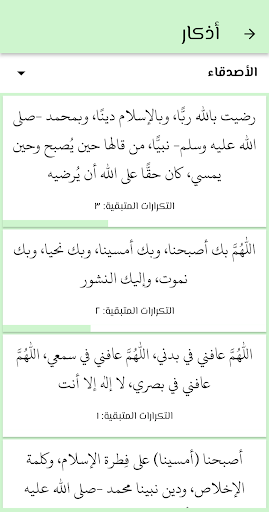 أذكار
الأصدقاء
رضيت بالله ربًّا، وبالإسلام دينًا، وبمحمد -صلى
الله عليه وسلم- نبيًّا، من قالها حين يُصبح وحين
يمسي، كان حقًّا على الله أن يُرضيه
التكرارات المتبقية: ٣
اللَّهُمَّ بك أصبحنا، وبك أمسينا، وبك نحيا، وبك
نموت، وإليك النشور
التكرارات المتبقية: ٢
اللَّهُمَّ عافني في بدني، اللَّهُمَّ عافني في سمعي، اللَّهُمَّ
عافني في بصري، لا إلٰه إلا أنت
التكرارات المتبقية: ١
أصبحنا (أمسينا) على فِطرة الإسلام، وكلمة
الإخلاص، ودين نبينا محمد -صلى الله عليه